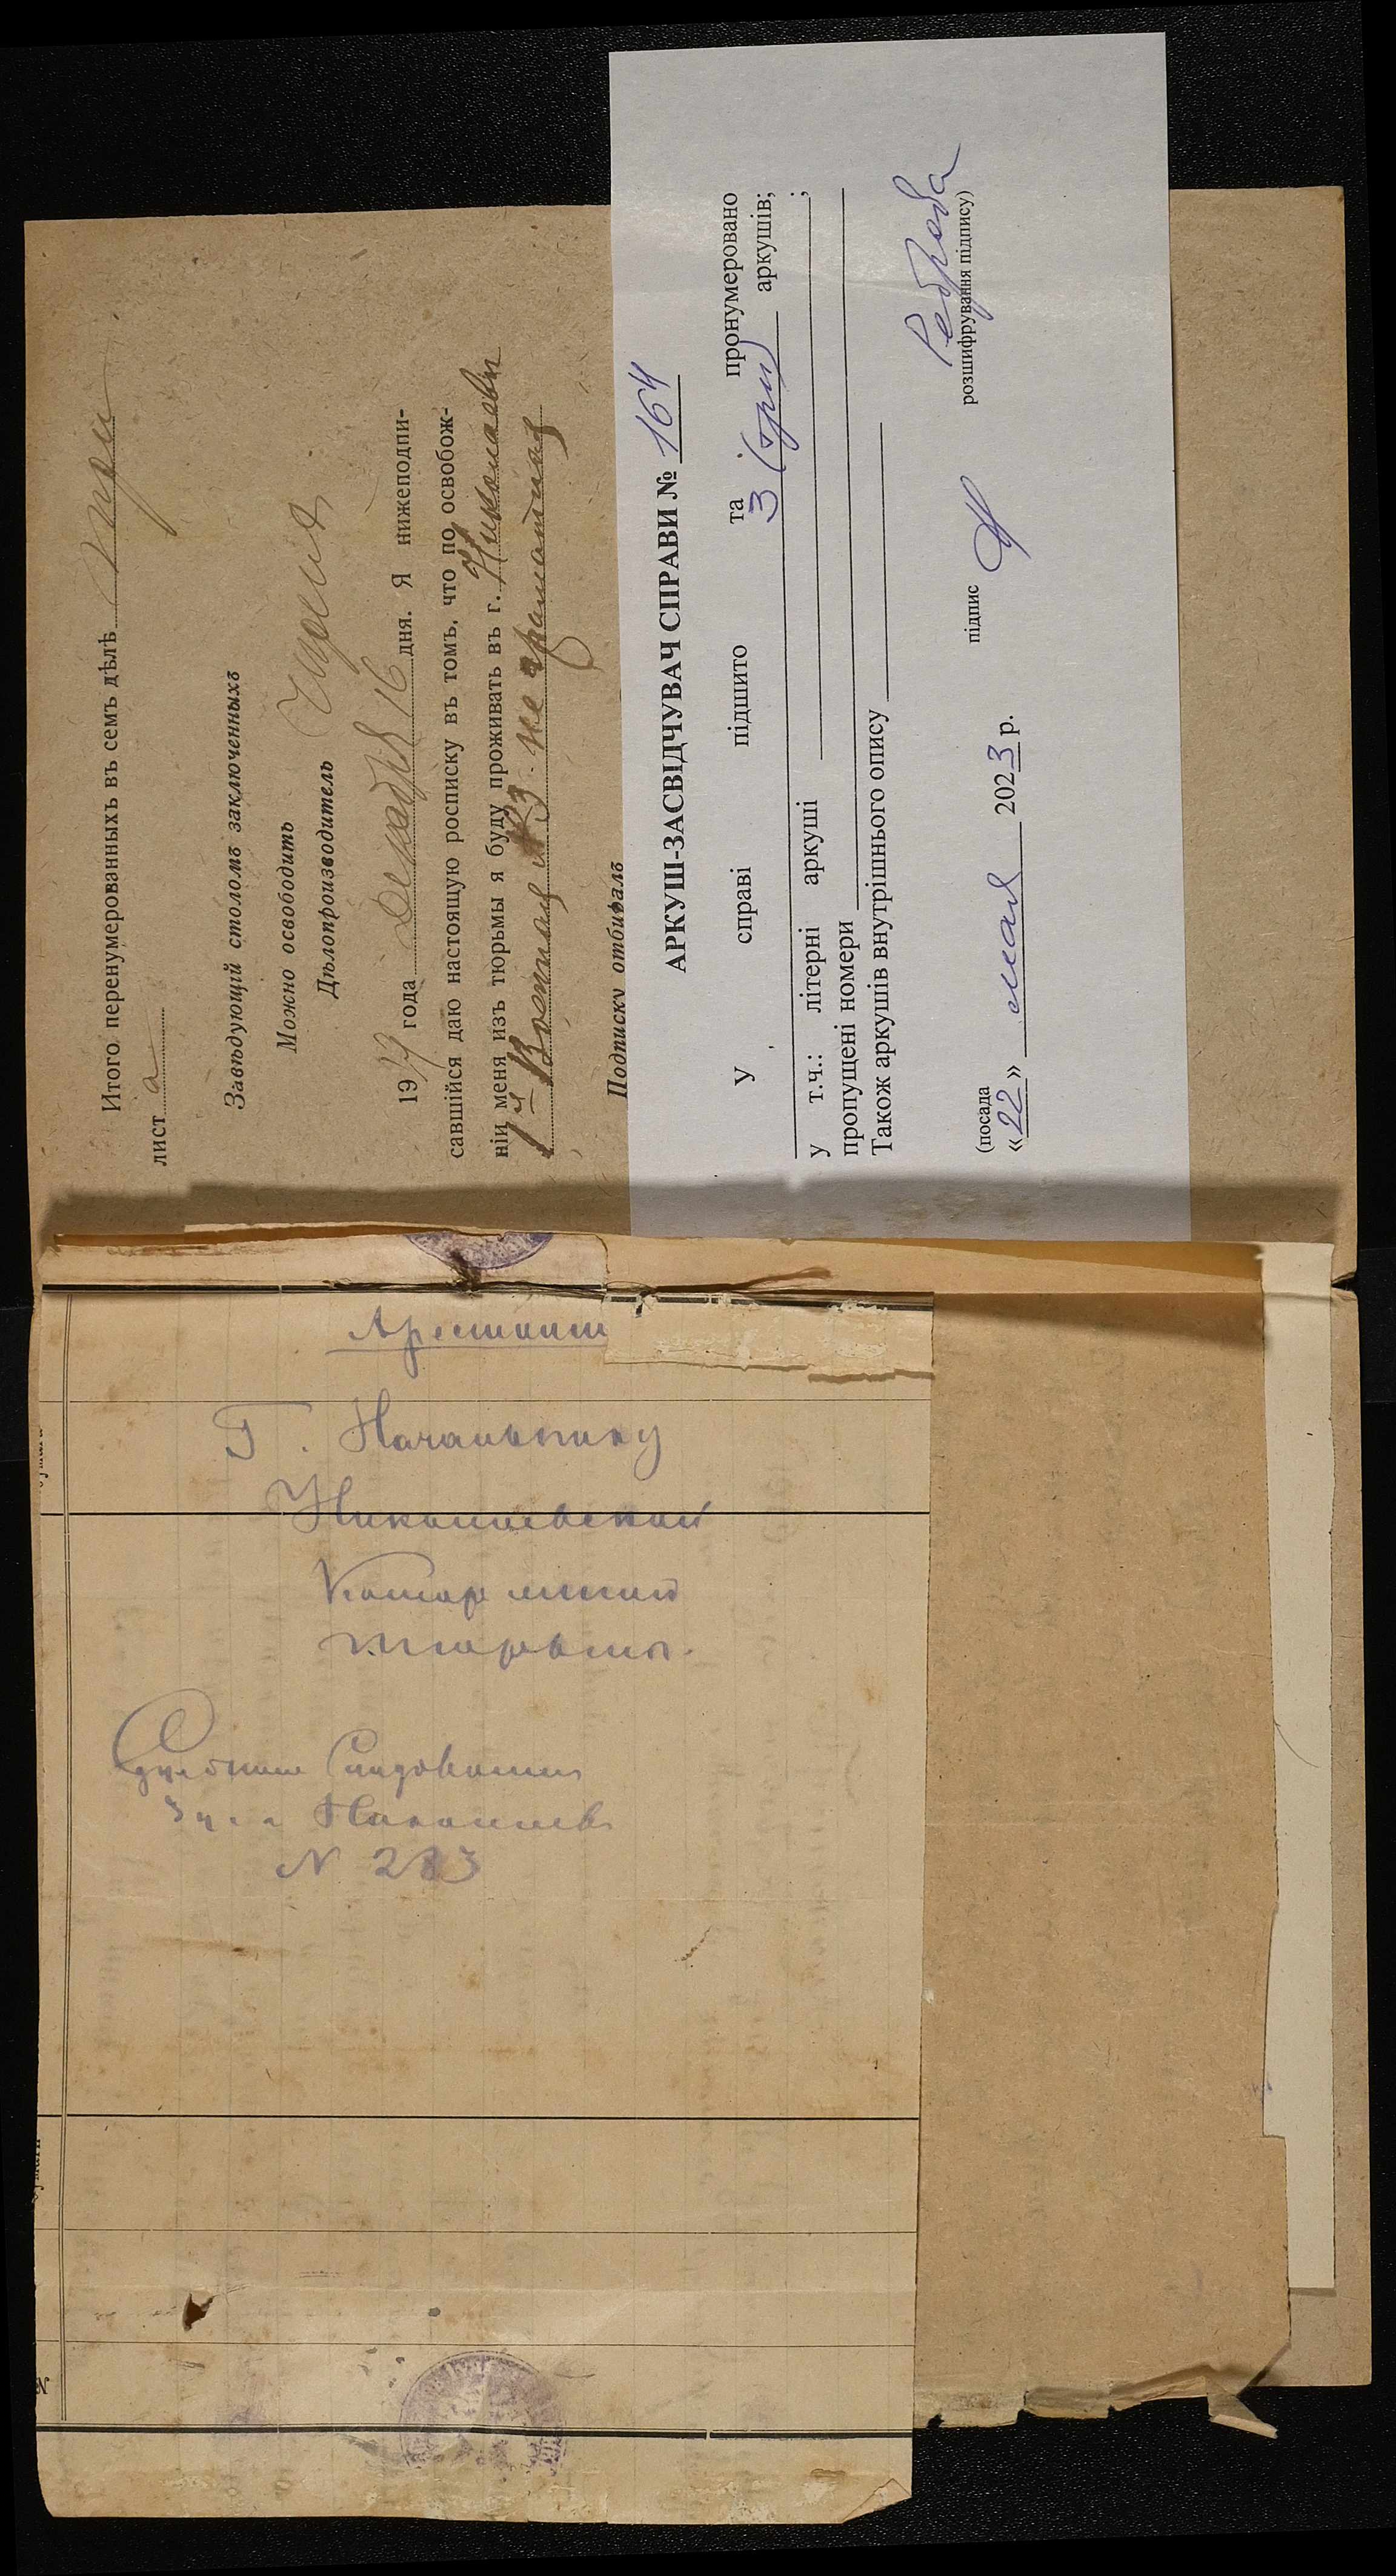 Итого перенумерованныхъ въ семъ дѣлѣ три
лист а
Завѣдующій столомъ заключенныхъ
Можно освободить
Дѣлопроизводитель
1917 года Декабря 16 дня. Я нижеподпи-
савшійся даю настоящую росписку въ томъ, что по освобож-
ніи меня изъ тюрьмы я буду проживать въ г. Николаевѣ
14 Военная №3. не грамотная
Подписку отбиралъ
АРКУШ-ЗАСВІДЧУВАЧ СПРАВИ № 164
У справі підшито та пронумеровано
3 (три) аркушів;
у т.ч.: літерні аркуші ;
пропущені номери
Також аркушів внутрішнього опису
(посада підпис розшифрування підпису)
Реброва
«22» мая 2023 р.
Арестант
Г. Начальнику
Николаевской
Каторжной
тюрьмы.
г. Николаев
N 283
№